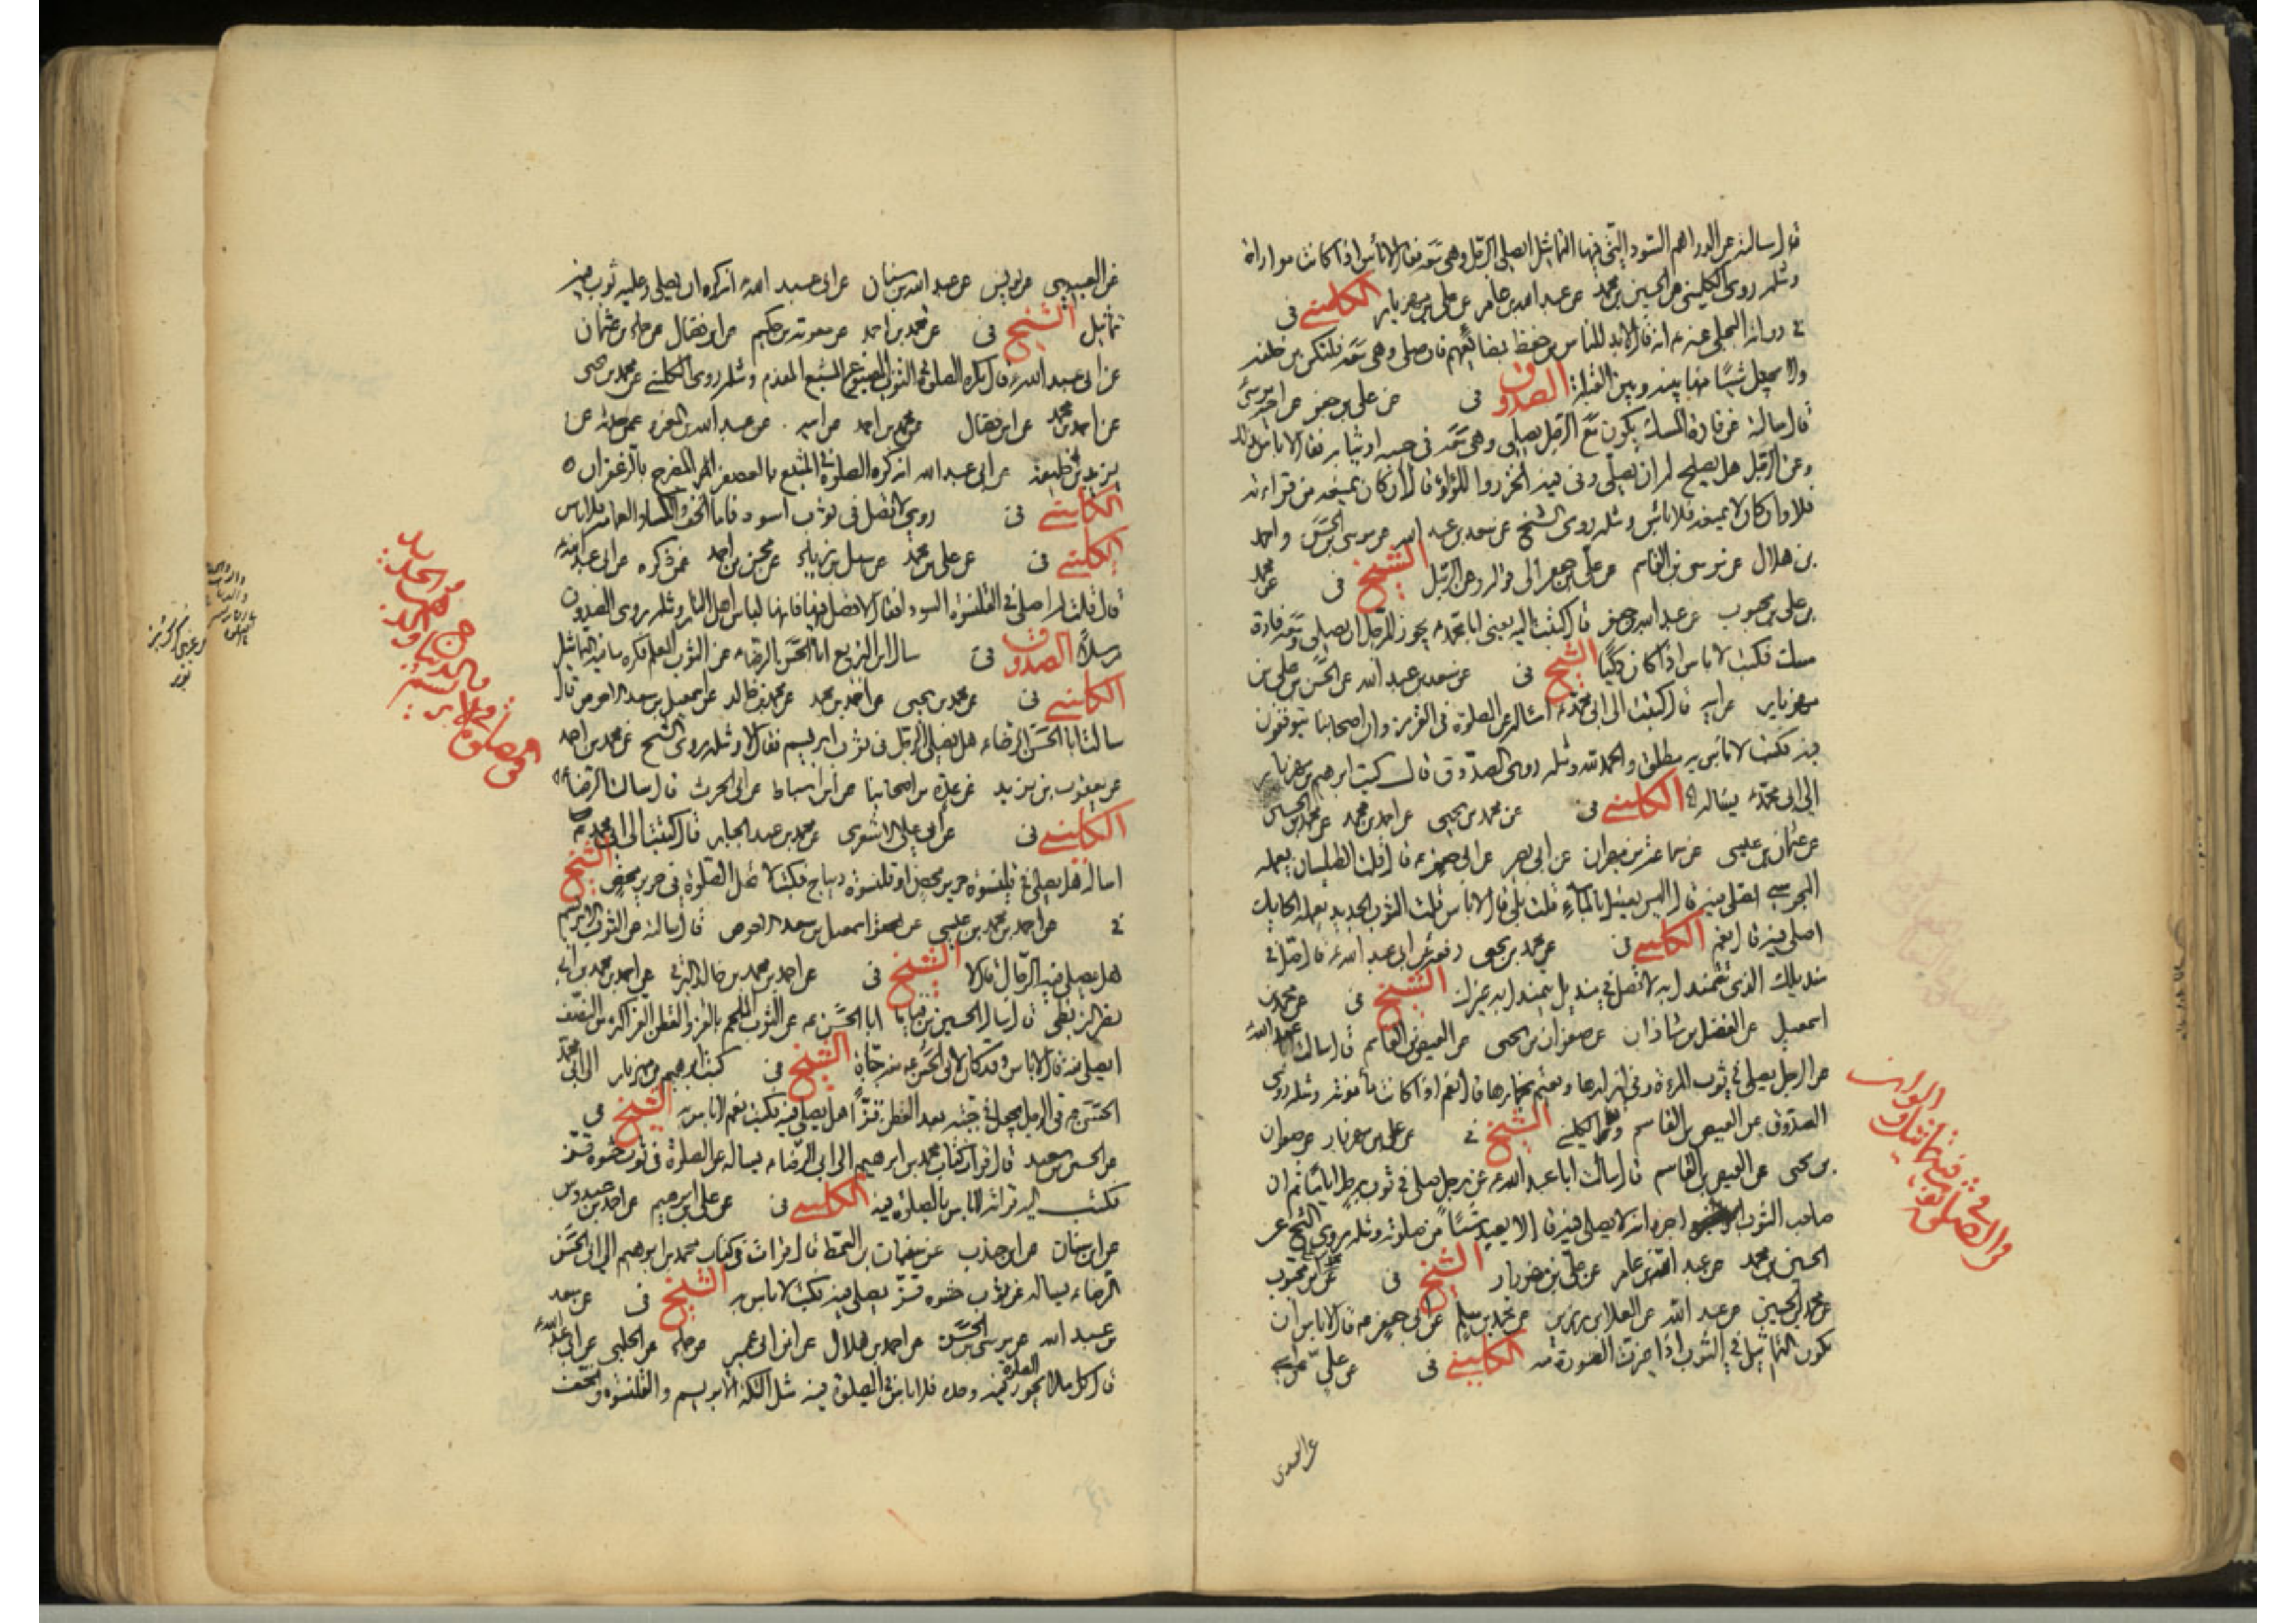 قال سالته عن الدراهم السود التي فيها التماثيل ايصلي الرجل وهي معه فقال لا باس اذا كانت مواراة
ومثله روى الكليني عن الحسين بن محمد عن عبد الله بن عامر عن علي بن مهزيار الكليني فى
قال لا بد للناس من حفظ بضائعهم فان صلى وهي معه فلتكن من خلفه
ولا يجعل شيئا منها بينه وبين القبلة الصدوق فى عن علي بن جعفر عن اخيه موسى
قال سالته عن فارة المسك يكون مع الرجل يصلي وهي معه فى جيبه او ثيابه فقال لا باس بذلك
وعن الرجل هل يصلح له ان يصلي وفى فيه الخرز واللؤلؤ قال ان كان يمنعه من قراءته
فلا وان كان لا يمنعه فلا باس ومثله روى الشيخ عن سعد بن عبد الله عن موسى بن الحسن واحمد
بن هلال عن موسى بن القاسم عن علي بن جعفر الى قوله وعن الرجل الشيخ فى عن محمد
بن علي بن محبوب عن عبد الله بن جعفر قال كتبت اليه يعني ابا محمد يجوز للرجل ان يصلي ومعه فارة
مسك فكتب لا باس اذا كان ذكيا الشيخ فى عن سعد بن عبد الله عن الحسن بن علي بن
مهزيار عن ابيه قال كتبت الى ابي محمد اساله عن الصلوة فى القرمز وان اصحابنا يتوقفون
فيه فكتب لا باس به مطلق والحمد لله ومثله روى الصدوق قال كتب ابرهيم بن مهزيار
الى ابي محمد يساله الكليني فى عن محمد بن يحيى عن احمد بن محمد عن محمد بن الحسين
عن عثمان بن عيسى عن سماعة بن مهران عن ابي بصير عن ابي جعفر قال قلت الطيلسان يعمله
المجوسي اصلي فيه قال اليس يغسل بالماء قلت بلى قال لا باس قلت الثوب الجديد يعمله الحايك
اصلي فيه قال نعم الكليني فى عن محمد بن يحيى رفعه عن ابي عبد الله قال صل في
منديلك الذي تتمندل به ولا تصل في منديل يتمندل به غيرك الشيخ فى عن محمد بن
اسمعيل عن الفضل بن شاذان عن صفوان بن يحيى عن العيص بن القاسم قال سالت ابا عبد الله
عن الرجل يصلي في ثوب المراة وفى ازارها ويعتم بخمارها قال نعم اذا كانت مأمونة ومثله روى
الصدوق عن العيص بن القاسم الشيخ فى عن علي بن مهزيار عن صفوان
بن يحيى عن العيص بن القاسم قال سالت ابا عبد الله عن رجل صلى في ثوب رجل اياما ثم ان
صاحب الثوب اخبره انه لا يصلى فيه قال لا يعيد شيئا من صلوته ومثله روى الشيخ عن
الحسين بن محمد عن عبد الله بن عامر عن علي بن مهزيار الشيخ فى عن ابن محبوب
عن محمد بن الحسين عن عبد الله عن العلا بن رزين عن محمد بن مسلم عن ابي جعفر قال لا باس ان
تكون التماثيل في الثوب اذا غيرت الصورة منه الكليني فى عن علي عن ابيه
عن العبيدي
عن العبيدي عن يونس عن عبد الله بن سنان عن ابي عبد الله انه كره ان يصلي وعليه ثوب فيه
تماثيل الشيخ فى عن محمد بن احمد عن معوية بن حكيم عن ابن فضال عن حماد بن عثمان
عن ابي عبد الله قال يكره الصلوة في الثوب المصبوغ المشبع المفدم ومثله روى الكليني عن محمد بن يحيى
عن احمد بن محمد عن ابن فضال عن محمد بن احمد عن ابيه عن عبد الله بن المغيرة عمن حدثه عن
يزيد بن خليفة عن ابي عبد الله انه كره الصلوة في المشبع بالعصفر المضرج بالزعفران
الكليني فى روي لا تصل فى ثوب اسود فاما الخف والكساء والعمامة فلا باس
الكليني فى عن علي بن محمد عن سهل بن زياد عن محسن بن احمد عمن ذكره عن ابي عبد الله
قال قلت له اصلي في القلنسوة السوداء فقال لا تصل فيها فانها لباس اهل النار ومثله روى الصدوق
مرسلا الصدوق فى سال ابن بزيع ابا الحسن الرضا عن الثوب المعلم فكره ما فيه التماثيل
الكليني فى عن محمد بن يحيى عن احمد بن محمد عن محمد بن خالد عن اسمعيل بن سعد الاحوص قال
سالت ابا الحسن الرضا هل يصلي الرجل فى ثوب ابريسم فقال لا ومثله روى الشيخ عن محمد بن احمد
عن يعقوب بن يزيد عن عدة من اصحابنا عن ابن اسباط عن ابي الحرث قال سالت الرضا
الكليني فى عن ابي علي الاشعري عن محمد بن عبد الجبار قال كتبت الى ابي محمد
اساله هل يصلى في قلنسوة حرير محض او قلنسوة ديباج فكتب لا تحل الصلوة في حرير محض الشيخ
فى عن احمد بن محمد بن عيسى عن اسمعيل بن سعد الاحوص قال سالته عن الثوب الابريسم
هل يصلي فيه الرجال قال لا الشيخ فى عن احمد بن محمد بن خالد البرقي عن احمد بن محمد بن ابي
نصر البزنطي قال سال الحسين بن قياما ابا الحسن عن الثوب الملحم بالقز والقطن القز اكثر من النصف
ايصلى فيه قال لا باس وقد كان لابي الحسن منه جبات الشيخ فى كتب ابرهيم بن مهزيار الى ابي محمد
الحسن فى الرجل يجعل في جبته بعد القطن قزا هل يصلي فيه فكتب نعم لا باس به الشيخ فى
عن الحسين بن سعيد قال قرات كتاب محمد بن ابرهيم الى ابي الرضا يساله عن الصلوة فى ثوب حشوه قز
فكتب اليه قراته لا باس بالصلوة فيه الكليني فى عن علي بن ابرهيم عن احمد بن عبدوس
عن ابن سنان عن ابن جندب عن سفيان بن السمط قال قرات فى كتاب محمد بن ابرهيم الى ابي الحسن
الرضا يساله عن ثوب حشوه قز يصلى فيه فكتب لا باس به الشيخ فى عن سعد
بن عبد الله عن موسى بن الحسن عن احمد بن هلال عن ابن ابي عمير عن حماد عن الحلبي عن ابي عبد الله
قال كل ما لا يجوز الصلوة فيه وحده فلا باس في الصلوة فيه مثل التكة الابريسم والقلنسوة والخف